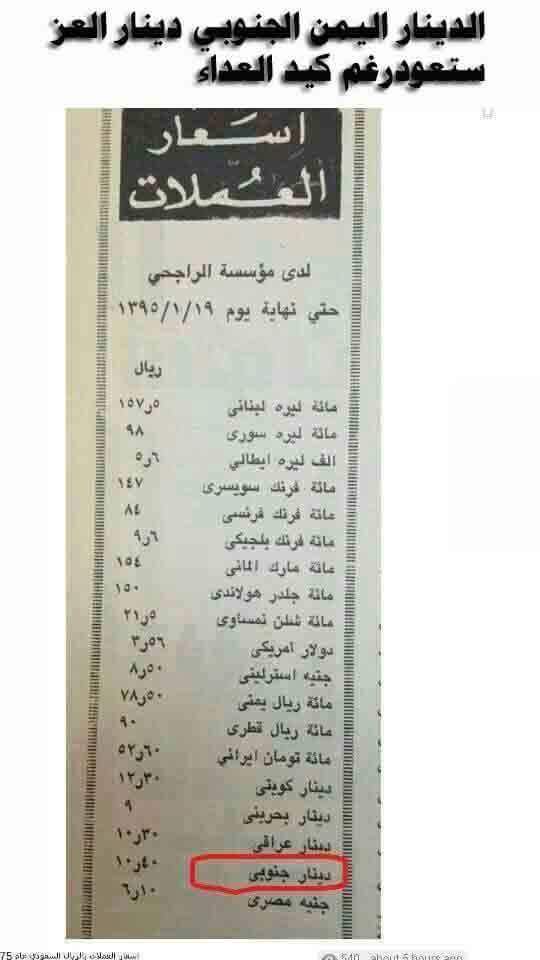 الدينار اليمن الجنوبي دينار العز
ستعودرغم كيد العداء
أسعار
العملات
لدى مؤسسة الراجحي
حتي نهاية يوم ١٣٩٥/١/١٩
ريال
مائة ليره لبنانى ٥ر١٥٧
مائة ليره سورى ٩٨
الف ليره ايطالي ٦ر٥
مائة فرنك سويسرى ١٤٧
مائة فرنك فرنسى ٨٤
مائة فرنك بلجيكى ٦ر٩
مائة مارك المانى ١٥٤
مائة جلدر هولاندى ١٥٠
مائة شلن نمساوى ٥ر٢١
دولار امريكى ٥٦ر٣
جنيه استرلينى ٥٠ر٨
مائة ريال يمنى ٥٠ر٧٨
مائة ريال قطرى ٩٠
مائة تومان ايراني ٦٠ر٥٢
دينار كويتى ٣٠ر١٢
دينار بحرينى ٩
دينار عراقى ٣٠ر١٠
دينار جنوبى ٤٠ر١٠
جنيه مصرى ١٠ر٦
اسعار العملات بالريال السعودي عام 75
540 about 5 hours ago